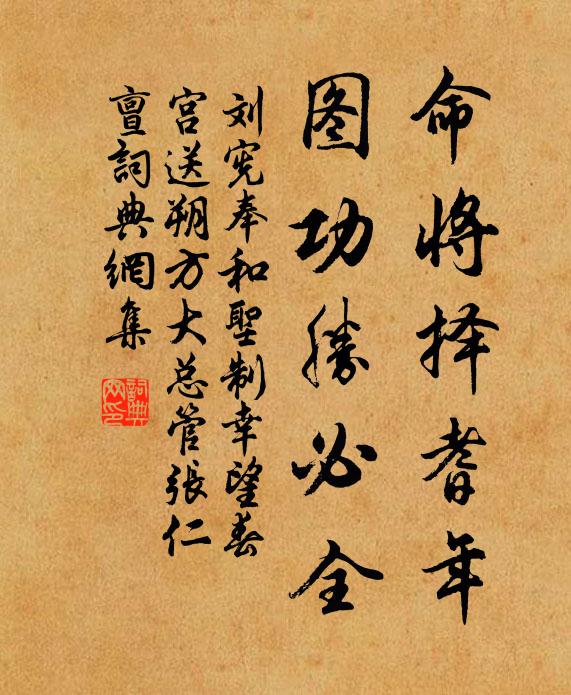 命将择耆年
图功勝必全
刘宪奉和聖制幸望春
宫送朔方大总管張仁
亶詞典網集
詞典网印